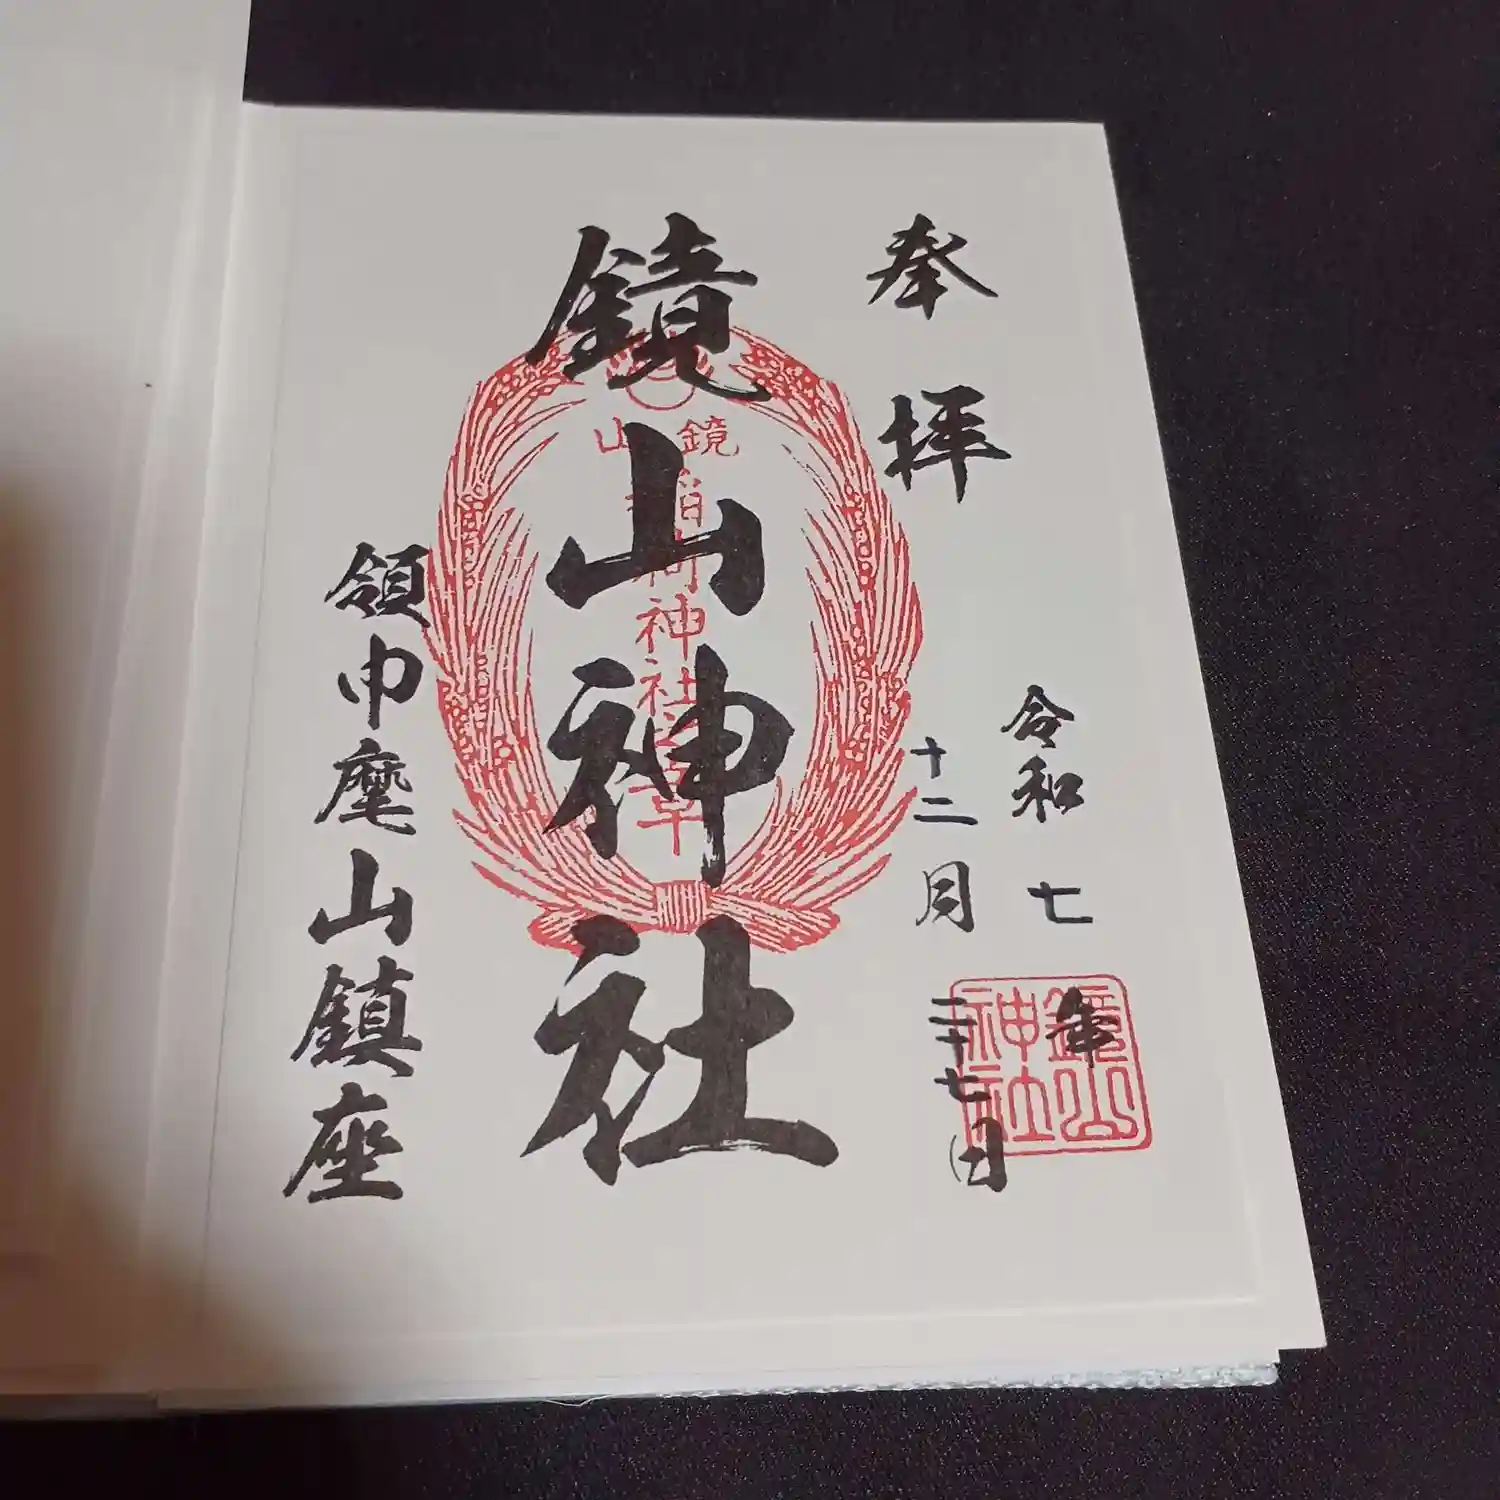 奉拝
令和七年
十二月二十七日
鏡山神社
鏡山
稲荷神社
章
領巾麾山鎮座
鏡山
神社